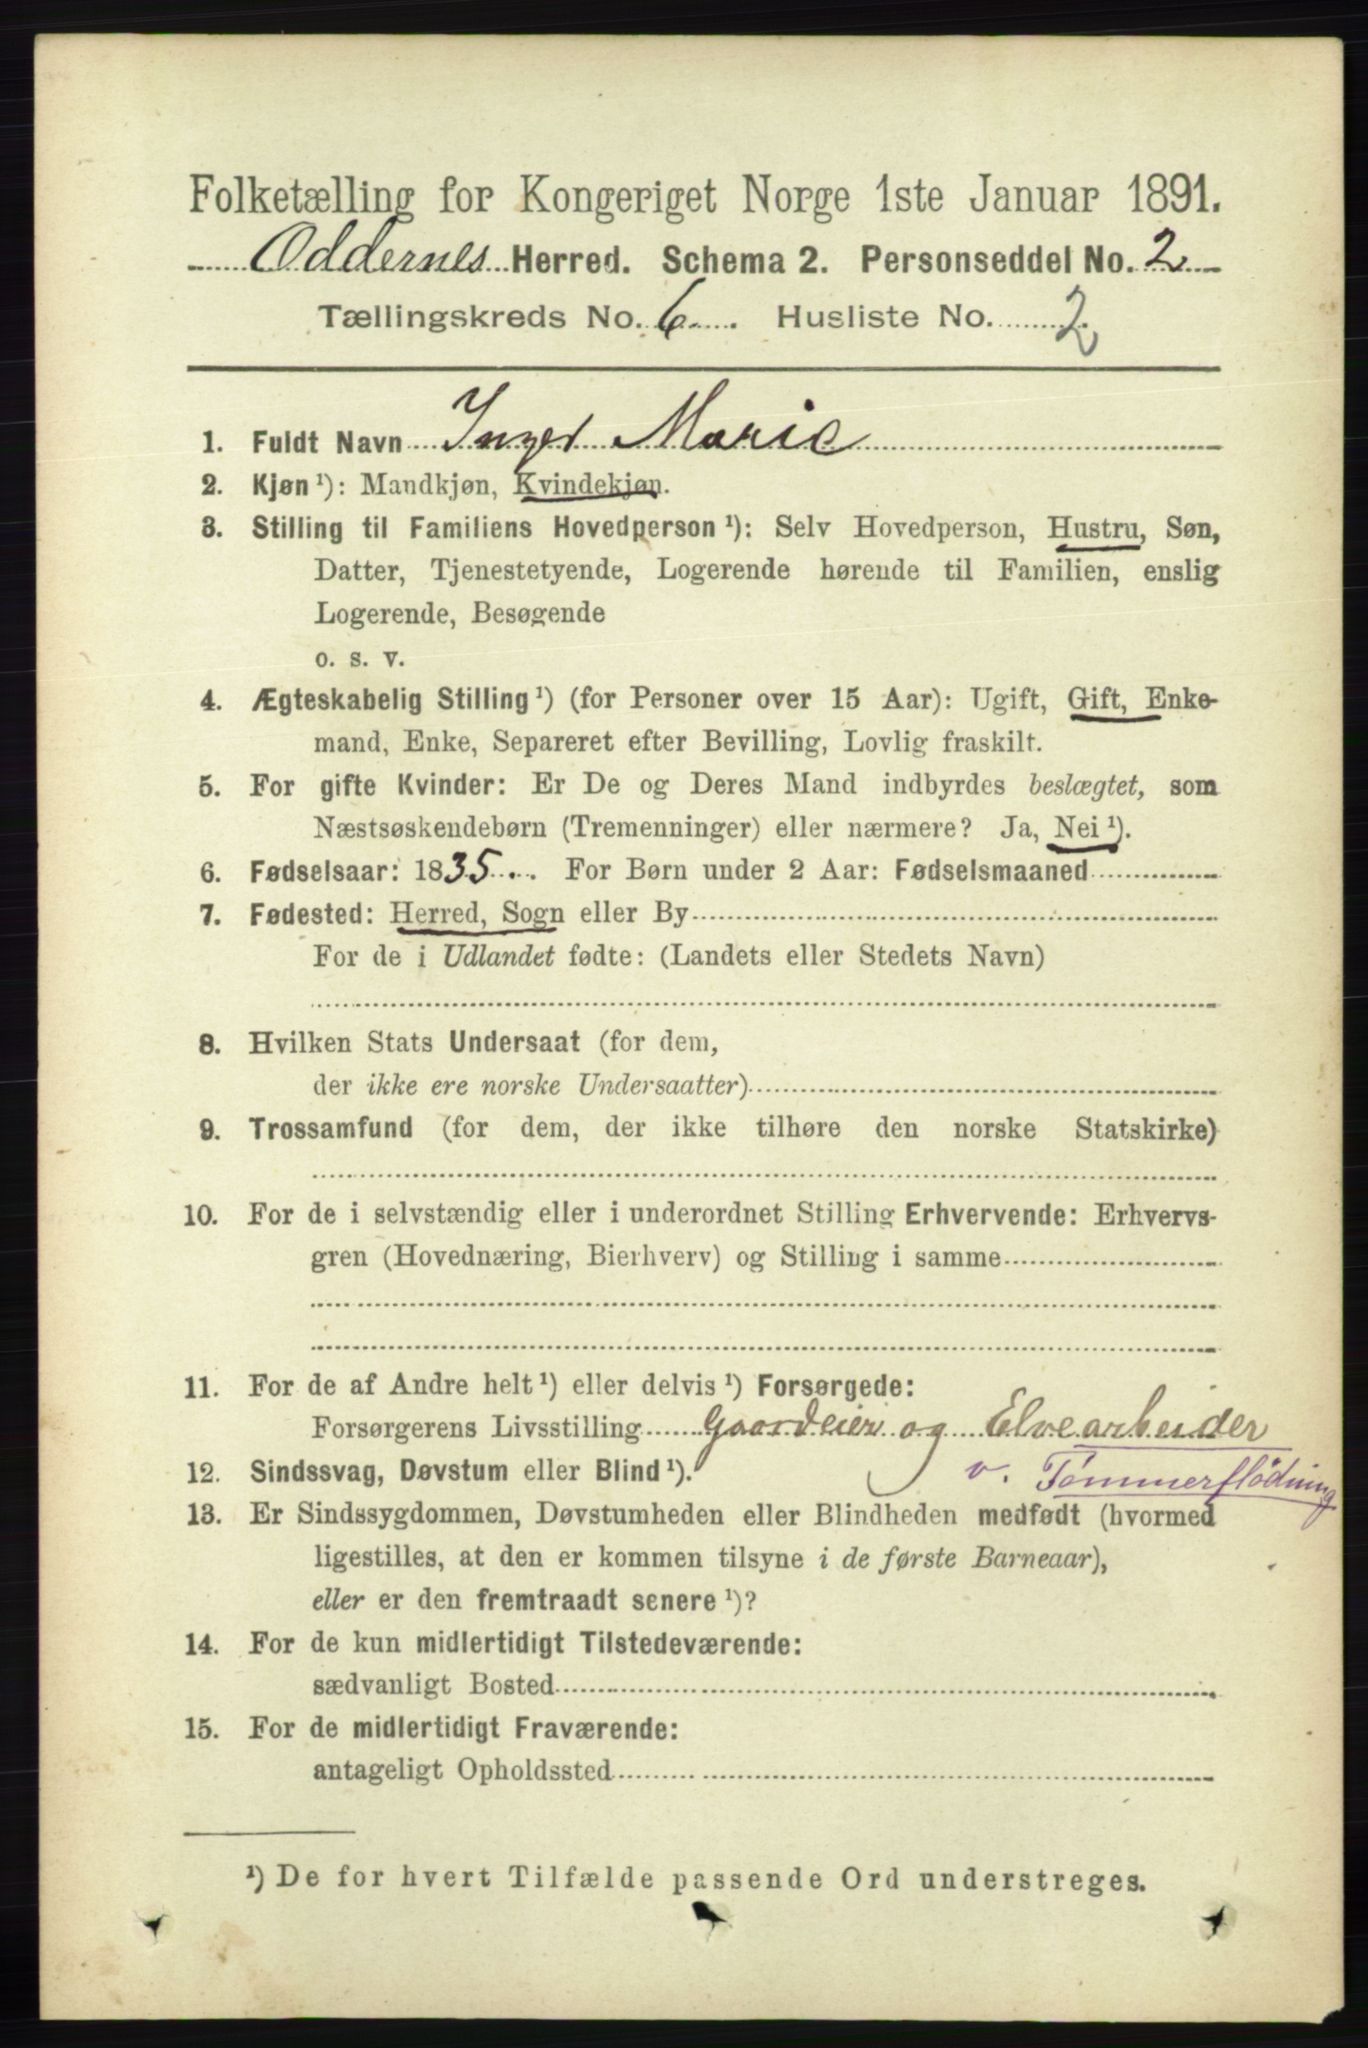 Folketælling for Kongeriget Norge 1ste Januar 1891.
Oddernes Herred. Schema 2. Personseddel No. 2
Tællingskreds No. 6. Husliste No. 2.
1. Fuldt Navn Inger Marie
2. Kjøn ¹): Mandkjøn, Kvindekjøn.
3. Stilling til Familiens Hovedperson ¹): Selv Hovedperson, Hustru, Søn,
Datter, Tjenestetyende, Logerende hørende til Familien, enslig
Logerende, Besøgende
o. s. v.
4. Ægteskabelig Stilling ¹) (for Personer over 15 Aar): Ugift, Gift, Enke-
mand, Enke, Separeret efter Bevilling, Lovlig fraskilt.
5. For gifte Kvinder: Er De og Deres Mand indbyrdes beslægtet, som
Næstsøskendebørn (Tremenninger) eller nærmere? Ja, Nei ¹).
6. Fødselsaar: 1835. For Børn under 2 Aar: Fødselsmaaned
7. Fødested: Herred, Sogn eller By
For de i Udlandet fødte: (Landets eller Stedets Navn)
8. Hvilken Stats Undersaat (for dem,
der ikke ere norske Undersaatter)
9. Trossamfund (for dem, der ikke tilhøre den norske Statskirke)
10. For de i selvstændig eller i underordnet Stilling Erhvervende: Erhvervs-
gren (Hovednæring, Bierhverv) og Stilling i samme
11. For de af Andre helt ¹) eller delvis ¹) Forsørgede:
Forsørgerens Livsstilling Gaardeier og Elvearbeider
12. Sindssvag, Døvstum eller Blind ¹). v. Tømmerflødning
13. Er Sindssygdommen, Døvstumheden eller Blindheden medfødt (hvormed
ligestilles, at den er kommen tilsyne i de første Barneaar),
eller er den fremtraadt senere ¹)?
14. For de kun midlertidigt Tilstedeværende:
sædvanligt Bosted
15. For de midlertidigt Fraværende:
antageligt Opholdssted
¹) De for hvert Tilfælde passende Ord understreges.